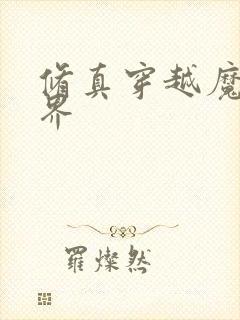 脩真穿越魔
界
羅燦然